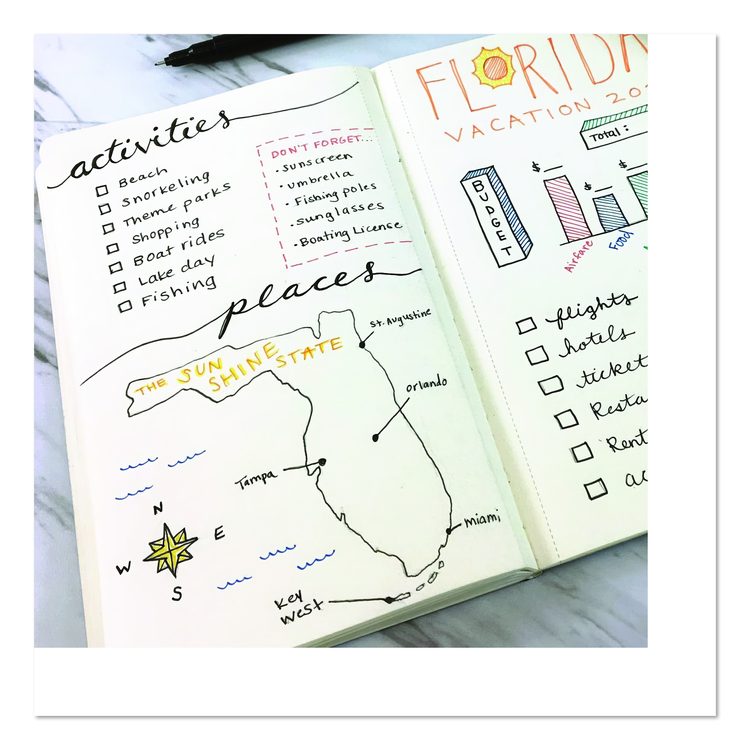 activities
Beach
Snorkeling
Theme parks
Shopping
Boat rides
Lake day
Fishing
DON'T FORGET...
• Sunscreen
• umbrella
• Fishing poles
• sunglasses
• Boating License
places
THE SUN
SHINE STATE
St. Augustine
Orlando
Tampa
Miami
Key
West
N
W
E
S
FLORIDA
VACATION
Total:
BUDGET
$
$
Airfare
Food
flights
hotels